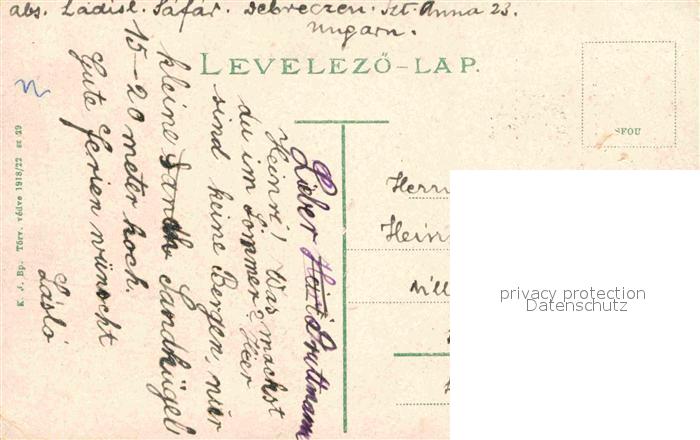 abs. Ladisl. Sáfár. Debreczen. Szt. Anna 23.
Ungarn.
LEVELEZŐ-LAP.
Lieber
Heinzi! Was machst
du im Sommer? Hier
sind keine Bergen, nur
kleine Sandhügel
15–20 meter hoch.
Gute Ferien wünscht
László
K. J. Bp. Törv. védve 1918/22 sz 29
Herrn
privacy protection
Datenschutz